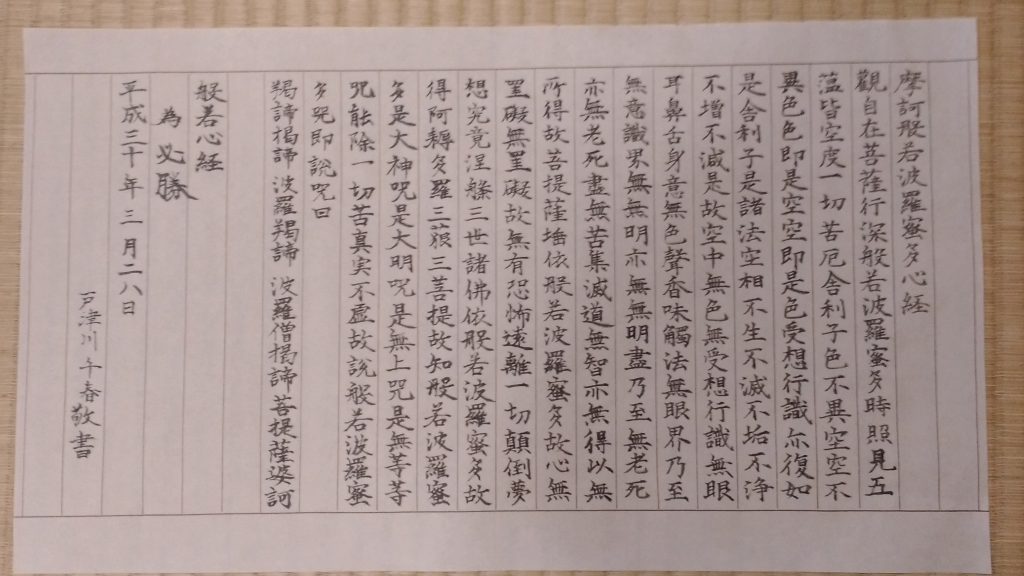 摩訶般若波羅蜜多心経
觀自在菩薩行深般若波羅蜜多時照見五
蕰皆空度一切苦厄舎利子色不異空空不
異色色即是空空即是色受想行識亦復如
是舎利子是諸法空相不生不滅不垢不浄
不増不減是故空中無色無受想行識無眼
耳鼻舌身意無色聲香味觸法無眼界乃至
無意識界無無明亦無無明盡乃至無老死
亦無老死盡無苦集滅道無智亦無得以無
所得故菩提薩埵依般若波羅蜜多故心無
罣礙無罣礙故無有恐怖遠離一切顛倒夢
想究竟涅槃三世諸佛依般若波羅蜜多故
得阿耨多羅三藐三菩提故知般若波羅蜜
多是大神呪是大明呪是無上呪是無等等
呪能除一切苦真実不虚故説般若波羅蜜
多呪即説呪曰
羯諦羯諦 波羅羯諦 波羅僧羯諦 菩提薩婆訶
般若心経
為 必勝
平成三十年三月二八日
戸津川千春敬書